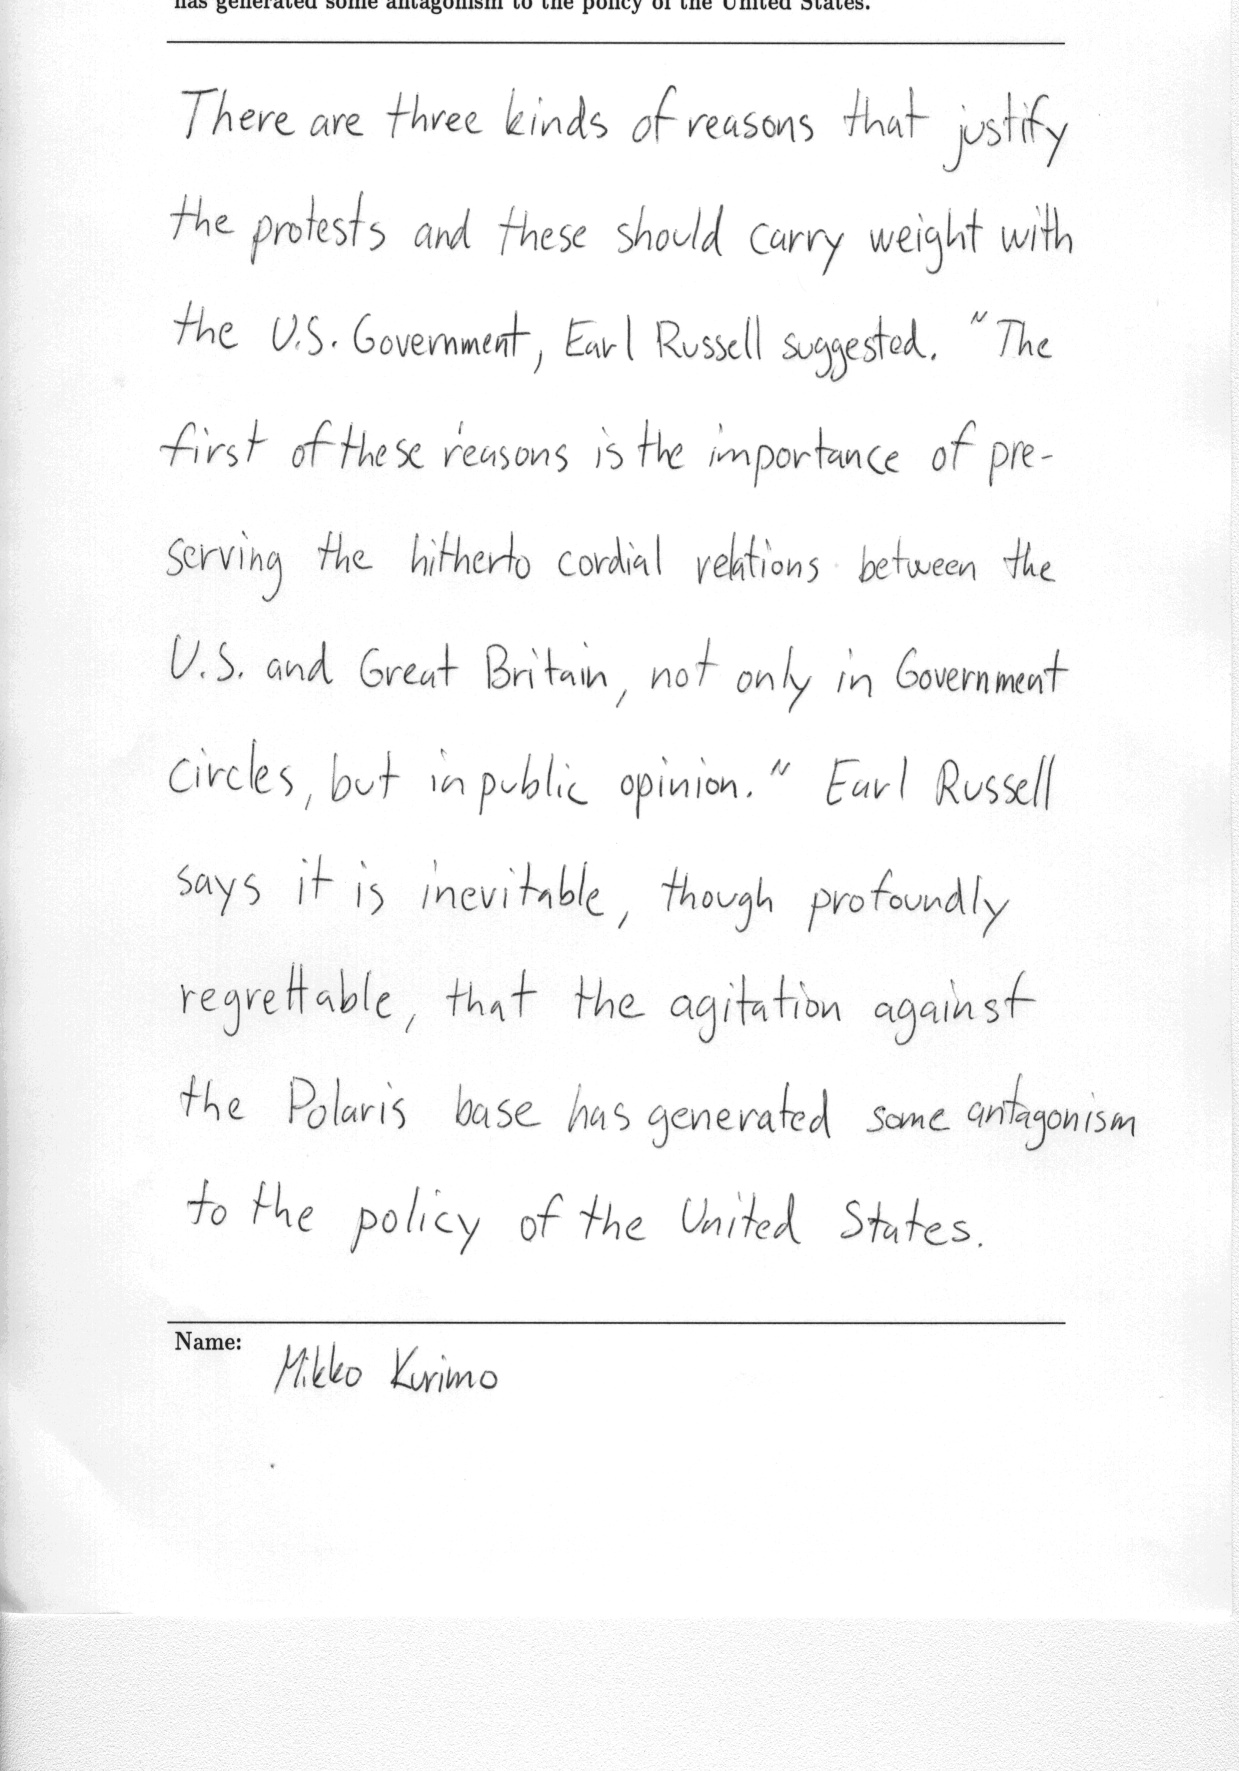 has generated some antagonism to the policy of the United States.
There are three kinds of reasons that justify
the protests and these should carry weight with
the U.S. Government, Earl Russell suggested. "The
first of these reasons is the importance of pre-
serving the hitherto cordial relations between the
U.S. and Great Britain, not only in Government
circles, but in public opinion." Earl Russell
says it is inevitable, though profoundly
regrettable, that the agitation against
the Polaris base has generated some antagonism
to the policy of the United States.
Name:
Mikko Kurimo